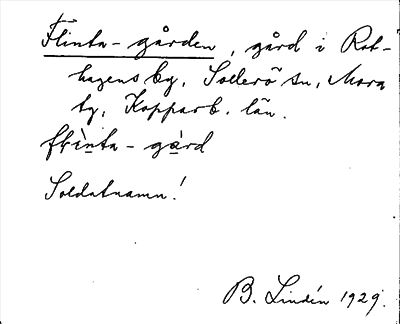 Flinta-gården, gård i Rot-
hagens by, Sollerö sn, Mora
tg, Kopparb. län.
flinta-gård
Soldatnamn!
B. Lindén 1929.